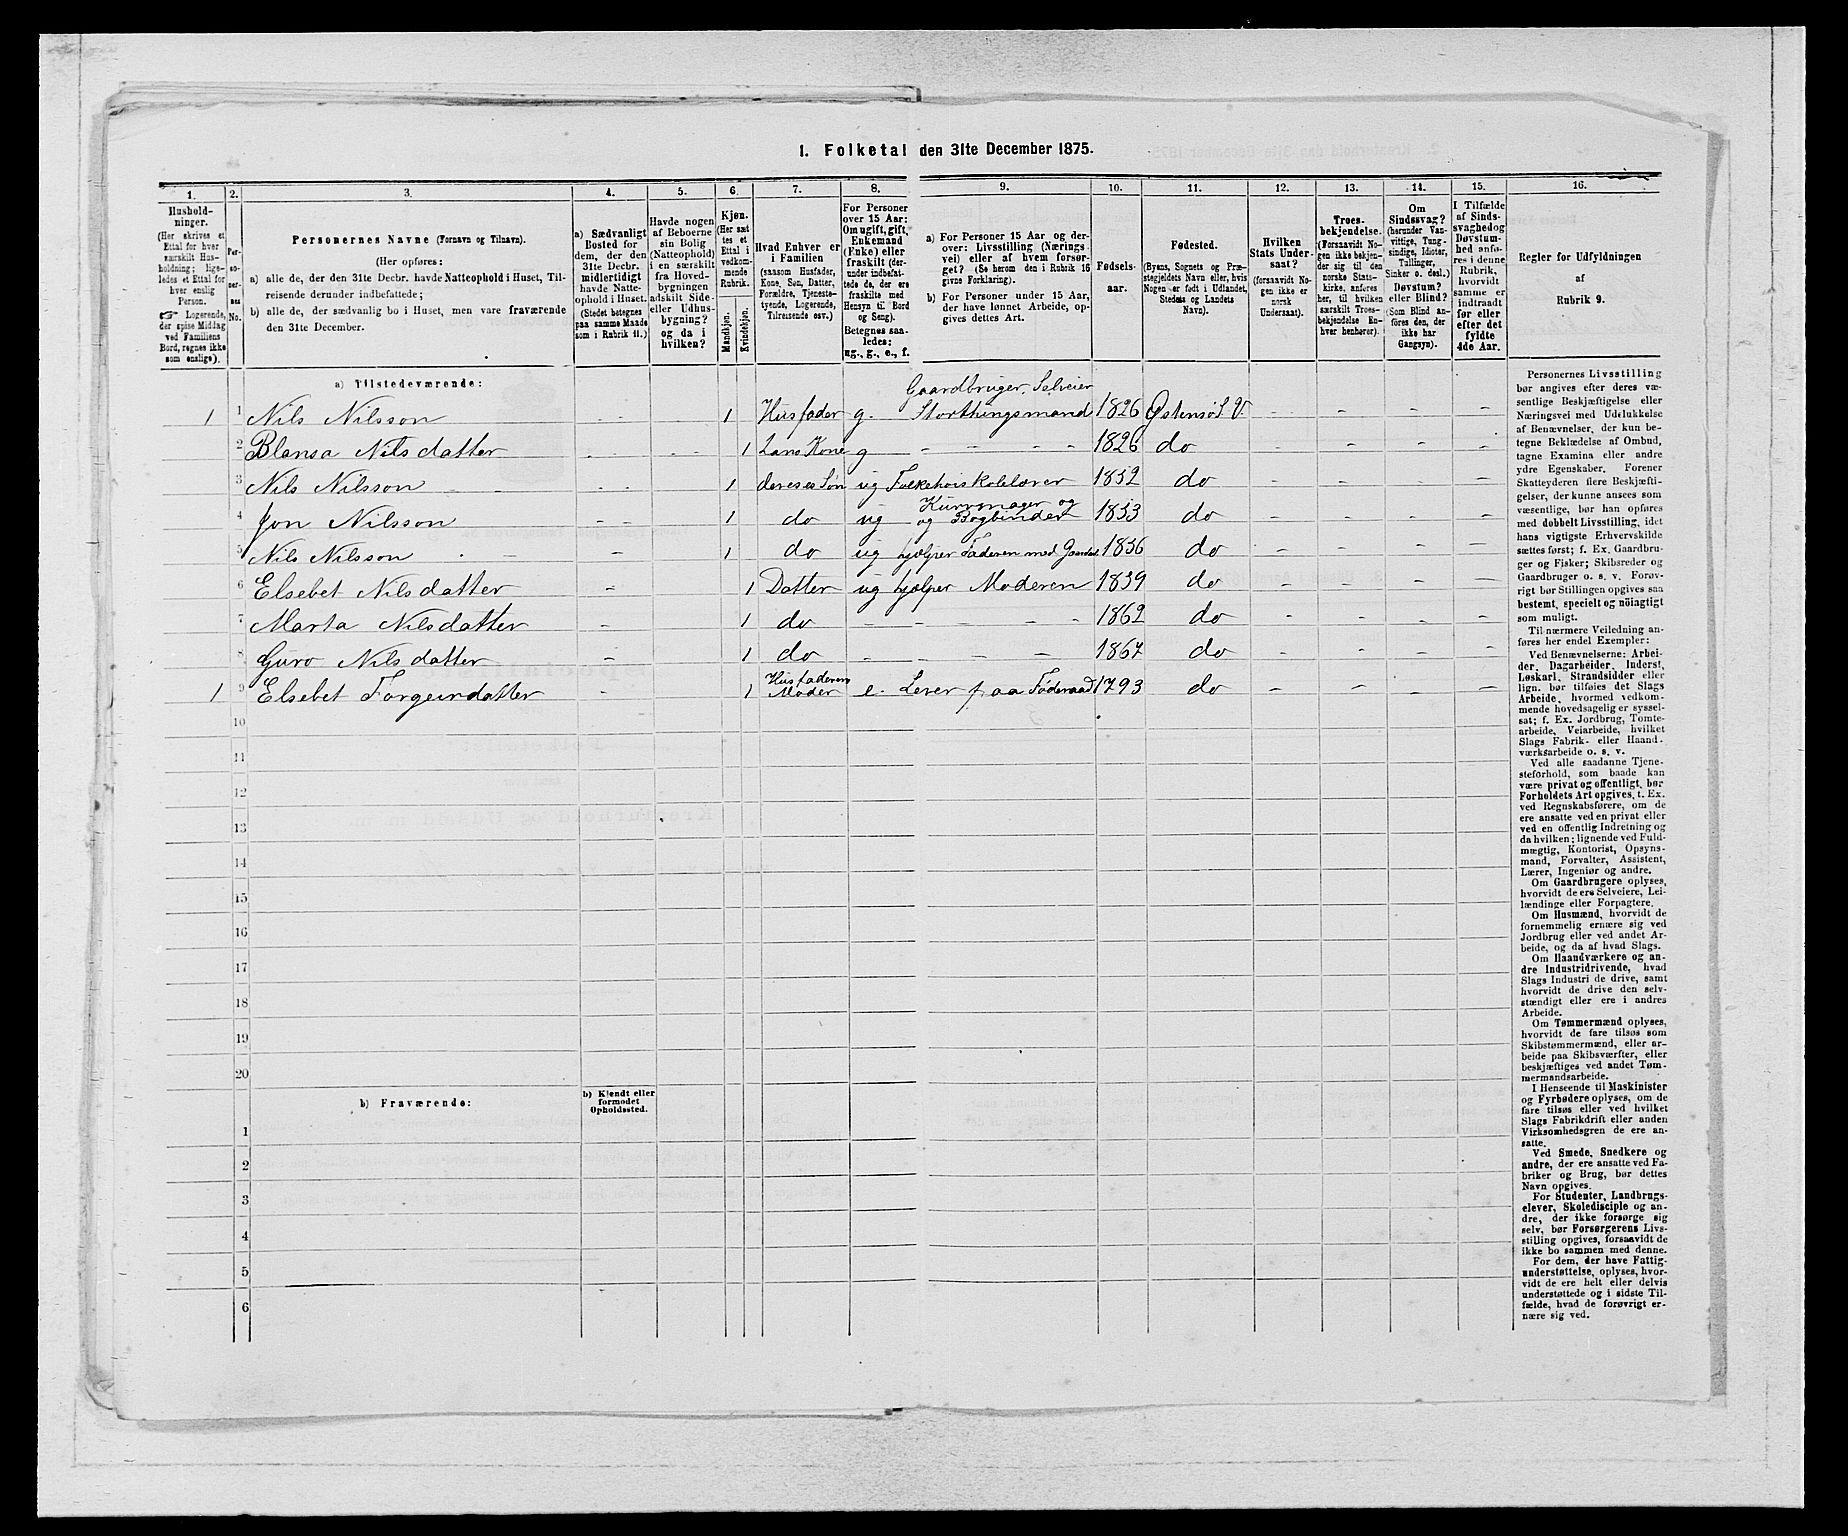 1. Folketal den 31te December 1875.
1. 2. 3. 4. 5. 6. 7. 8. 9. 10. 11. 12. 13. 14. 15. 16.
Hushold-
ninger.
(Her skrives et
Ettal for hver
særskilt Hus-
holdning; lige-
ledes et Ettal for
hver enslig
Person.
☞ Logerende,
der spise Middag
ved Familiens
Bord, regnes ikke
som enslige).
Per-
so-
ner-
nes
No.
Personernes Navne (Fornavn og Tilnavn).
(Her opføres:
a) alle de, der den 31te Decbr. havde Natteophold i Huset, Til-
reisende derunder indbefattede;
b) alle de, der sædvanlig bo i Huset, men vare fraværende
den 31te December.
a) Sædvanligt
Bosted for
dem, der den
31te Decbr.
midlertidigt
havde Natte-
ophold i Huset.
(Stedet betegnes
paa samme Maade
som i Rubrik 11.)
Havde nogen
af Beboerne
sin Bolig
(Natteophold)
i en særskilt
fra Hoved-
bygningen
adskilt Side-
eller Udhus-
bygning?
og da i
hvilken?
Kjøn.
(Her sæt-
tes et
Ettal i
vedkom-
mende
Rubrik.
Mandkjøn.
Kvindekjøn.
Hvad Enhver er
i Familien
(saasom Husfader,
Kone, Søn, Datter,
Forældre, Tjeneste-
tyende, Logerende,
Tilreisende osv.)
For Personer
over 15 Aar:
Om ugift, gift,
Enkemand
(Enke) eller
fraskilt (der-
under indbefat-
tede de, der ere
fraskilte med
Hensyn til Bord
og Seng).
Betegnes saa-
ledes:
ug., g., e., f.
a) For Personer 15 Aar og der-
over: Livsstilling (Nærings-
vei) eller af hvem forsør-
get? (Se herom den i Rubrik 16
givne Forklaring).
b) For Personer under 15 Aar,
der have lønnet Arbeide, op-
gives dettes Art.
Fødsels-
aar.
Fødested.
(Byens, Sognets og Præ-
stegjeldets Navn eller, hvis
Nogen er født i Udlandet,
Stedets og Landets
Navn).
Hvilken
Stats Under-
saat?
(forsaavidt No-
gen ikke er
norsk
Undersaat).
Troes-
bekjendelse.
(Forsaavidt No-
gen ikke bekjen-
der sig til den
norske Stats-
kirke, anføres
her, til hvilken
særskilt Troes-
bekjendelse En-
hver henhører).
Om
Sindssvag?
(herunder Van-
vittige, Tung-
sindige, Idioter,
Tullinger,
Sinker o. desl.)
Døvstum?
eller Blind?
(Som Blind an-
føres den, der
ikke har
Gangsyn).
I Tilfælde
af Sinds-
svaghed og
Døvstum-
hed anfø-
res i denne
Rubrik,
hvorvidt
samme er
indtraadt
før eller
efter det
fyldte
4de Aar.
Regler for Udfyldningen
af
Rubrik 9.
a) Tilstedeværende:
Gaardbruger, Selveier
1 1 Nils Nilsson 1 Husfader g. Storthingsmand 1826 Østensø S. V.
2 Nilsdatter 1 Hans Kone g 1826 do
3 Nils Nilsson 1 dereses Søn ug Folkehøiskolelærer 1852 do
Kurvmager og
4 Jon Nilsson 1 do ug og Bogbinder 1853 do
5 Nils Nilsson 1 do ug hjelper Faderen med 1856 do
6 Elsebet Nilsdatter 1 Datter ug hjelper Moderen 1859 do
7 Marta Nilsdatter 1 do 1862 do
8 Guro Nilsdatter 1 do 1867 do
Husfaderens
1 9 Elsebet Torgeirdatter 1 Moder e. Lever paa Føderaad 1793 do
10
11
12
13
14
15
16
17
18
19
20
b) Fraværende:
b) Kjendt eller
formodet
Opholdssted.
1
2
3
4
5
6
Personernes Livsstilling
bør angives efter deres væ-
sentlige Beskjæftigelse eller
Næringsvei med Udelukkelse
af Benævnelser, der kun be-
tegne Beklædelse af Ombud,
tagne Examina eller andre
ydre Egenskaber. Forener
Skatteyderen flere Beskjæfti-
gelser, der kunne ansees som
væsentlige, bør han opføres
med dobbelt Livsstilling, idet
hans vigtigste Erhvervskilde
sættes først; f. Ex. Gaardbru-
ger og Fisker; Skibsreder og
Gaardbruger o. s. v. Forøv-
rigt bør Stillingen opgives saa
bestemt, specielt og nöiagtigt
som muligt.
Til nærmere Veiledning an-
føres her endel Exempler:
Ved Benævnelserne: Arbei-
der, Dagarbeider, Inderst,
Løskarl, Strandsidder eller
lign. bør tilføies det Slags
Arbeide, hvormed vedkom-
mende hovedsagelig er syssel-
sat; f. Ex. Jordbrug, Tomte-
arbeide, Veiarbeide, hvilket
Slags Fabrik- eller Haand-
værksarbeide o. s. v.
Ved alle saadanne Tjene-
steforhold, som baade kan
være privat og offentligt, bør
Forholdets Art opgives, t. Ex.
ved Regnskabsførere, om de
ere ansatte ved en privat eller
ved en offentlig Indretning og
da hvilken; lignende ved Fuld-
mægtig, Kontorist, Opsyns-
mand, Forvalter, Assistent,
Lærer, Ingeniør og andre.
Om Gaardbrugere oplyses,
hvorvidt de ere Selveiere, Lei-
lændinge eller Forpagtere.
Om Husmænd, hvorvidt de
fornemmelig ernære sig ved
Jordbrug eller ved andet Ar-
beide, og da af hvad Slags.
Om Haandværkere og an-
dre Industridrivende, hvad
Slags Industri de drive, samt
hvorvidt de drive den selv-
stændigt eller ere i andres
Arbeide.
Om Tømmermænd oplyses,
hvorvidt de fare tilsøs som
Skibstømmermænd, eller ar-
beide paa Skibsværfter, eller
beskjæftiges ved andet Tøm-
mermandsarbeide.
I Henseende til Maskinister
og Fyrbødere oplyses, om de
fare tilsøs eller ved hvilket
Slags Fabrikdrift eller anden
Virksomhedsgren de ere an-
satte.
Ved Smede, Snedkere og
andre, der ere ansatte ved Fa-
briker og Brug, bør dettes
Navn opgives.
For Studenter, Landbrugs-
elever, Skoledisciple og an-
dre, der ikke forsørge sig
selv, bør Forsørgerens Livs-
stilling opgives, forsaavidt de
ikke bo sammen med denne.
For dem, der have Fattig-
understøttelse, oplyses, hvor-
vidt de ere helt eller delvis
understøttede og i sidste Til-
fælde, hvad de forøvrigt er-
nære sig ved.